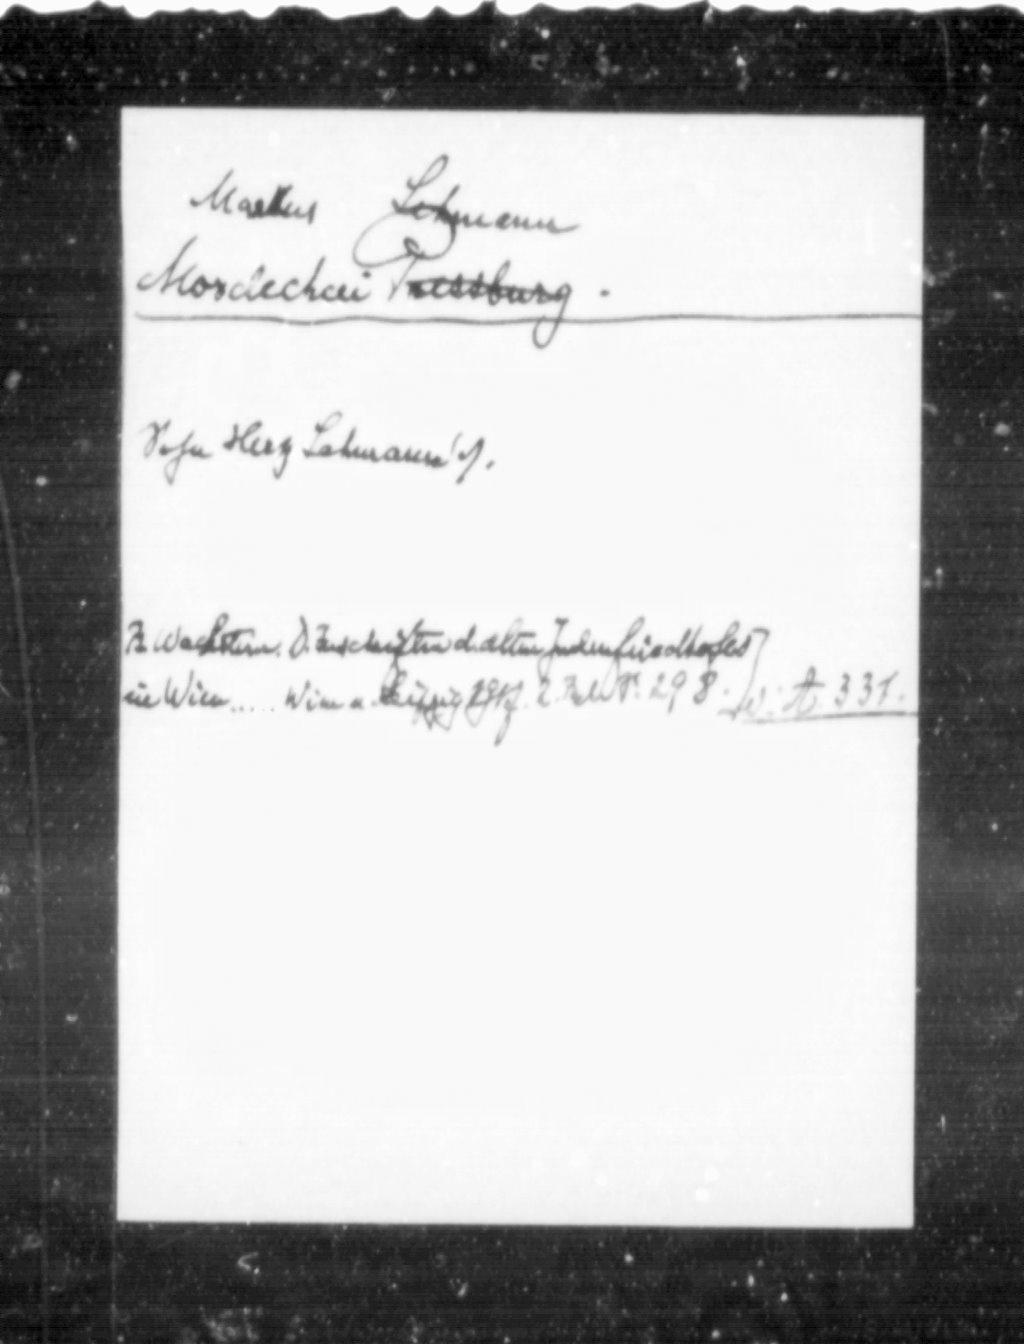 Markus Lehmann
Mordechai Pressburg.
Sohn Herz Lehmann's.
B. Wachstein. D. Inschriften d. alten Judenfriedhofes
in Wien..... Wien u. Leipzig 1917. 2. S. 298. W. A 331.